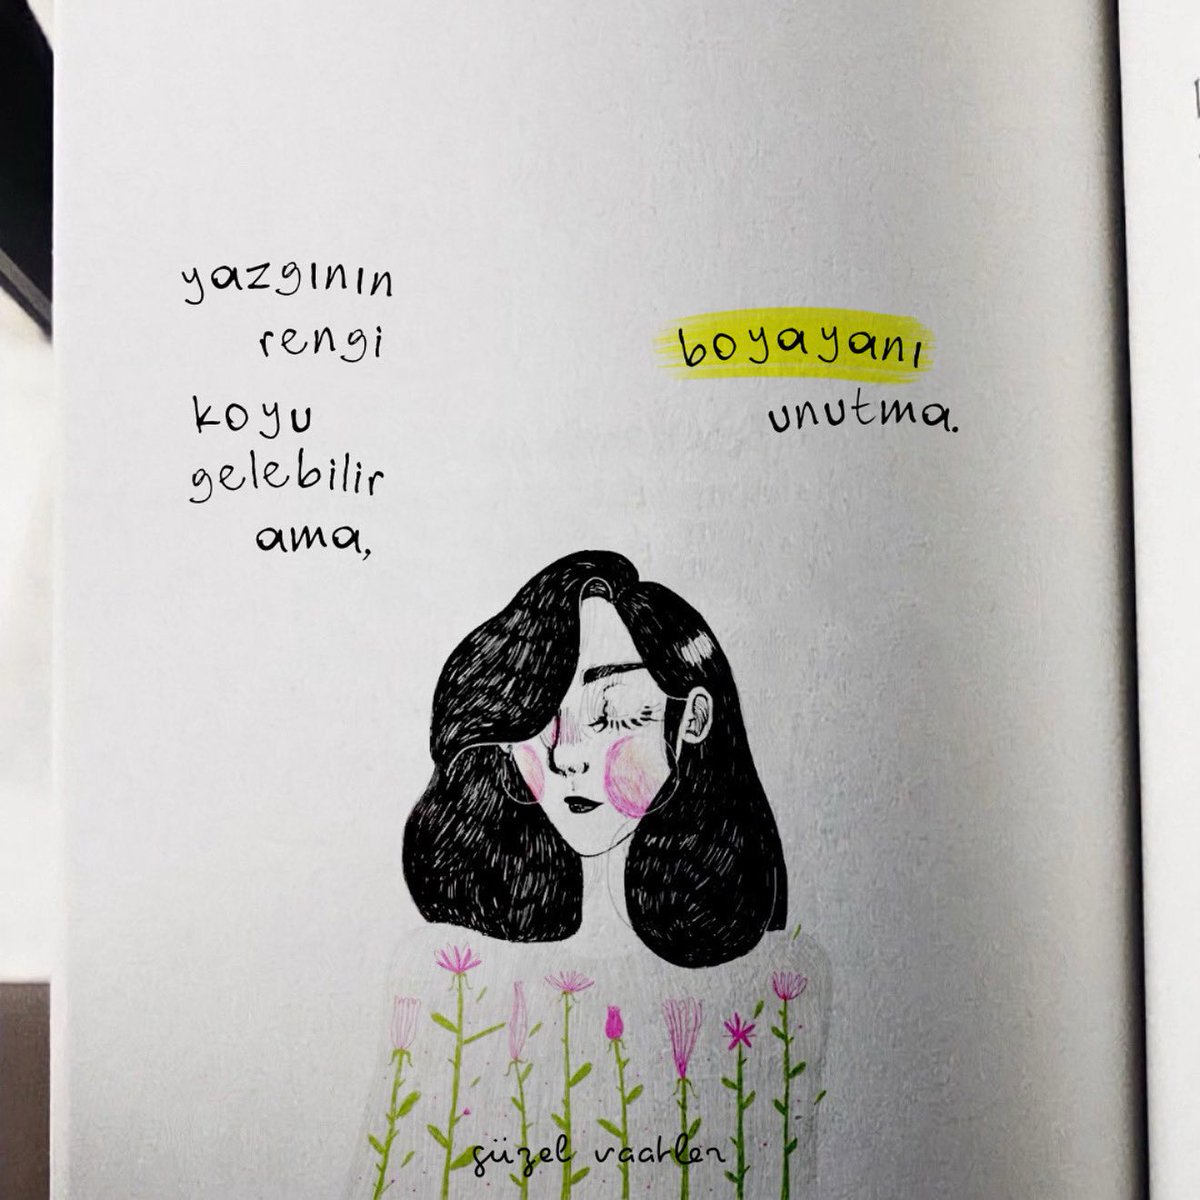 yazgının
rengi
koyu
gelebilir
ama,
boyayanı
unutma.
güzel vaatler